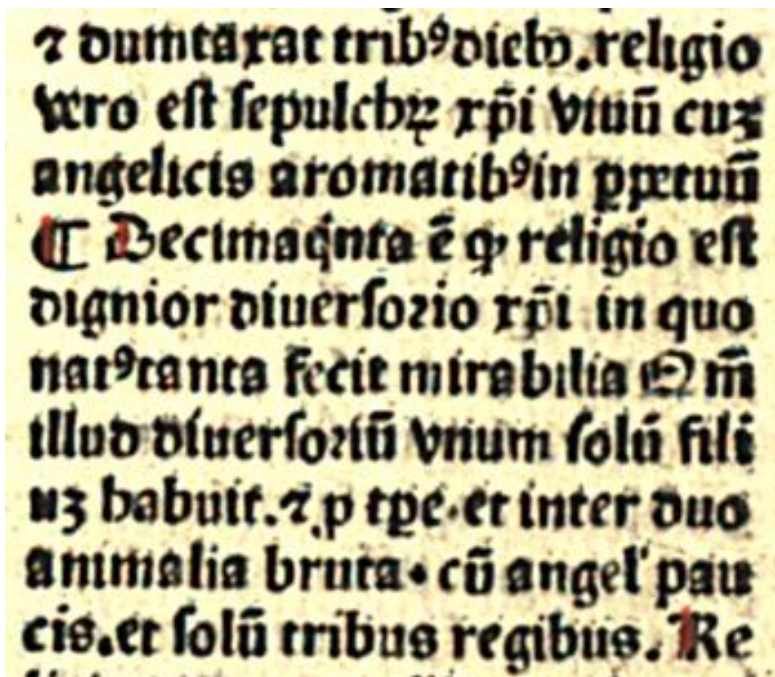 ⁊ dumtaxat tribꝰ diebꝫ. religio
vero eſt ſepulchꝝ xp̄i viuū cuꝫ
angelicis aromatibꝰ in ꝑpetuū
¶ Decimaq̇nta ē ꝙ religio eſt
dignior diuerſoꝛio xp̄i in quo
natꝰ tanta fecit mirabilia Q m̄
illud diuerſoꝛiū vnum ſolū fili
uꝫ habuit. ⁊ ꝑ tꝑe. et inter duo
animalia bruta. cū angel' pau
cis. et ſolū tribus regibus. Re